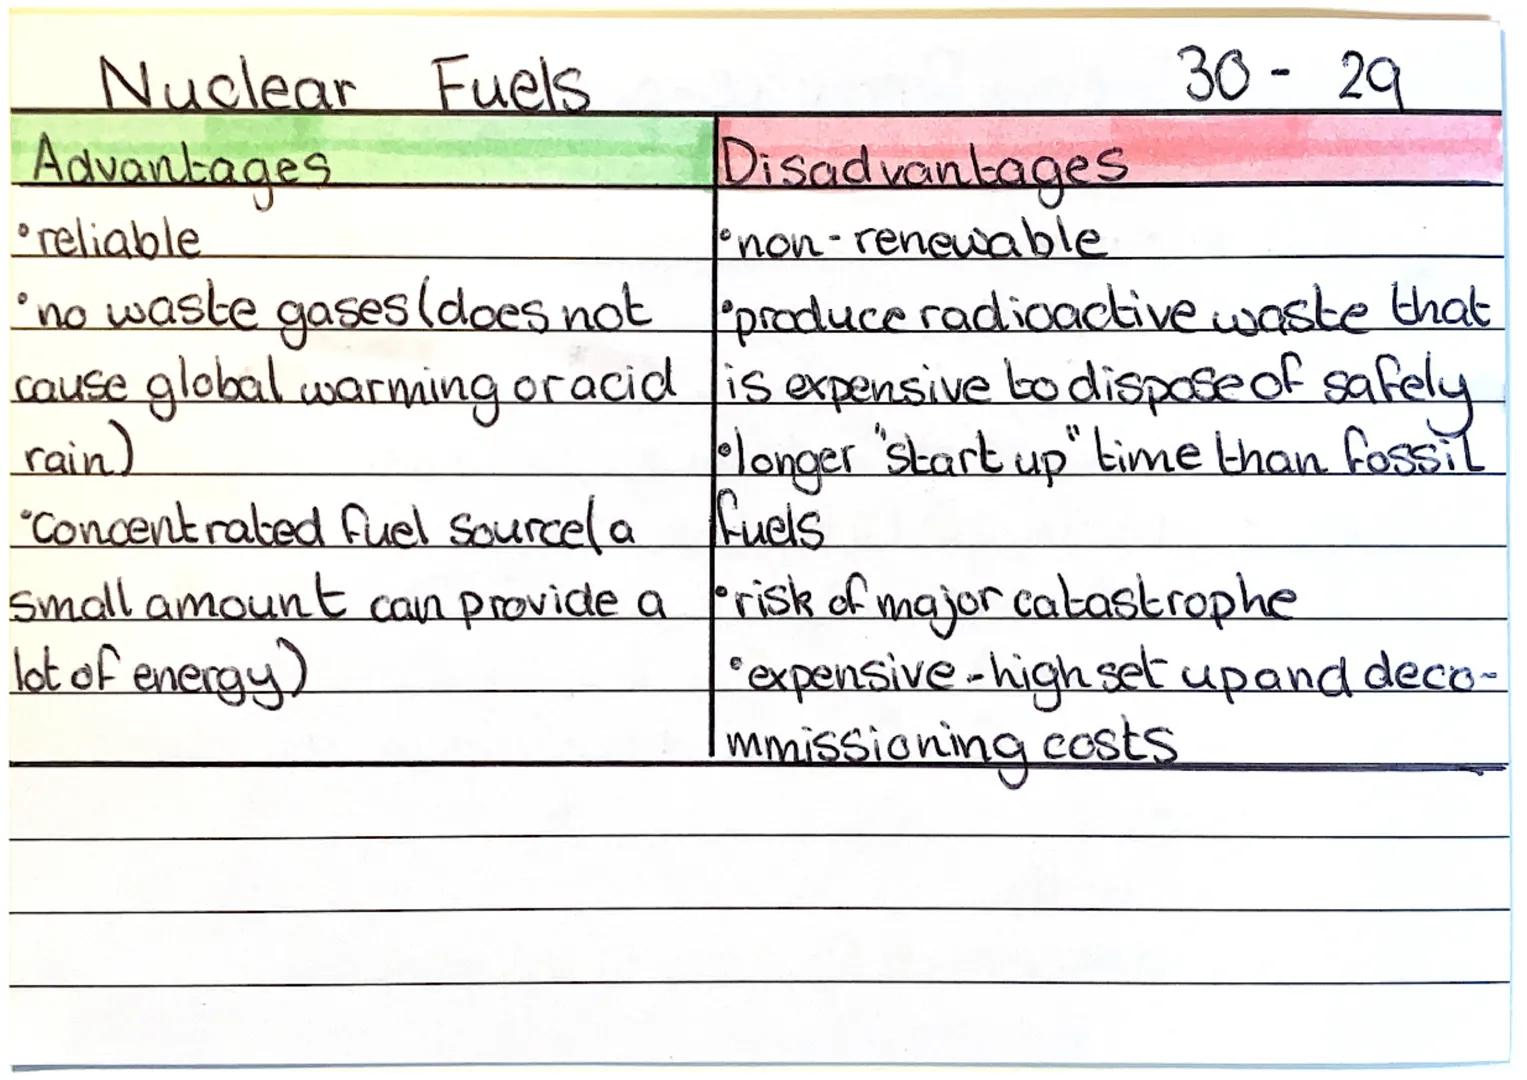 Nuclear Fuels 30 - 29
Advantages
•reliable
•no waste gases (does not
cause global warming or acid
rain)
•Concentrated fuel source (a
small amount can provide a
lot of energy)
Disadvantages
•non-renewable
•produce radioactive waste that
is expensive to dispose of safely
•longer "start up" time than fossil
fuels
•risk of major catastrophe
•expensive - high set up and deco-
mmissioning costs